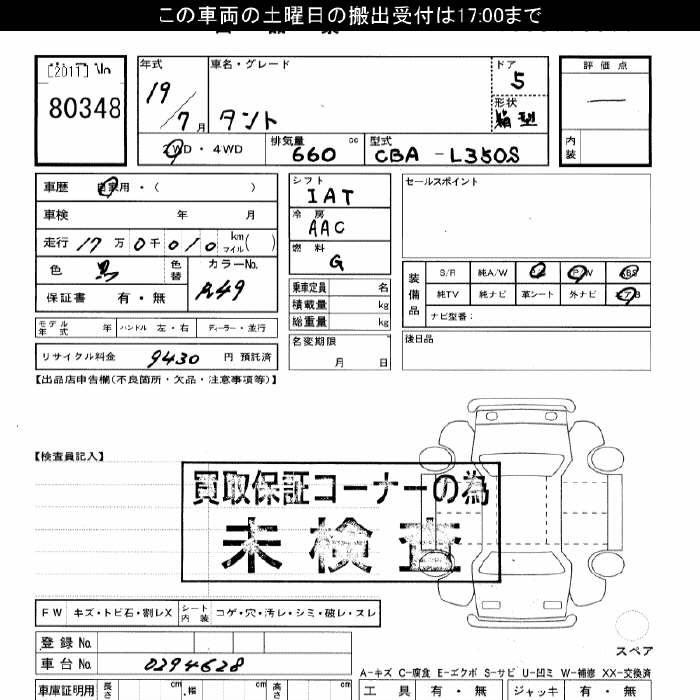 この車両の土曜日の搬出受付は17:00まで
[2011] No
80348
年式
19/7月
車名・グレード
タント
ドア
5
形状
箱型
評価点
—
内装
2WD・4WD
排気量
660 cc
型式
CBA-L350S
車歴 自家用・( )
車検 年 月
走行 17万0千010 km マイル( )
色 黒
色替
カラーNo.
A49
保証書 有・無
モデル年式 年 ハンドル 左・右 ディーラー・並行
リサイクル料金 9430 円 預託済
シフト
IAT
冷房
AAC
燃料
G
乗車定員 名
積載量 kg
総重量 kg
名変期限
月 日
セールスポイント
装備品
S/R 純A/W P/S P/W ABS
純TV 純ナビ 革シート 外ナビ エアB
ナビ型番:
後日品
【出品店申告欄(不良箇所・欠品・注意事項等)】
【検査員記入】
買取保証コーナーの為
未検査
FW キズ・トビ石・割レX シート内装 コゲ・穴・汚レ・シミ・破レ・スレ
登録No.
車台No. 0294628
スペア
A-キズ C-腐食 E-エクボ S-サビ U-凹ミ W-補修 XX-交換済
車庫証明用 長さ cm 幅 cm 高さ cm
工具 有・無 ジャッキ 有・無